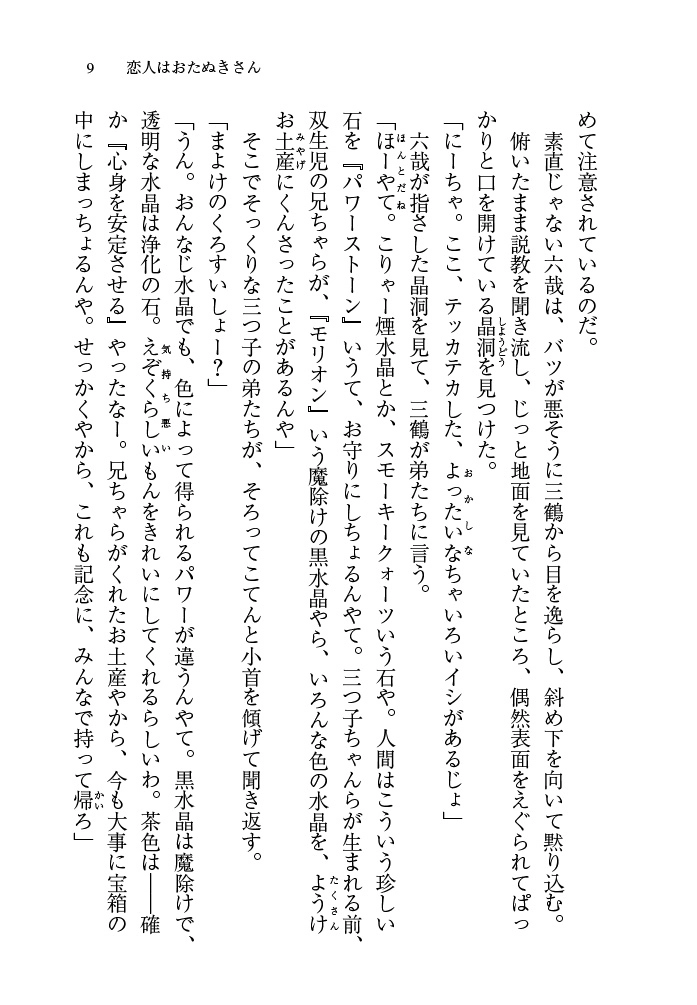 9　恋人はおたぬきさん
めて注意されているのだ。
　素直じゃない六哉は、バツが悪そうに三鶴から目を逸らし、斜め下を向いて黙り込む。
　俯いたまま説教を聞き流し、じっと地面を見ていたところ、偶然表面をえぐられてぱっ
かりと口を開けている晶洞しょうどうを見つけた。
「にーちゃ。ここ、テッカテカした、よったいなおかしなちゃいろいイシがあるじょ」
　六哉が指さした晶洞を見て、三鶴が弟たちに言う。
「ほーやてほんとだね。こりゃー煙水晶とか、スモーキークォーツいう石や。人間はこういう珍しい
石を『パワーストーン』いうて、お守りにしちょるんやて。三つ子ちゃんらが生まれる前、
双生児の兄ちゃらが、『モリオン』いう魔除けの黒水晶やら、いろんな色の水晶を、ようけたくさん
お土産みやげにくんさったことがあるんや」
　そこでそっくりな三つ子の弟たちが、そろってこてんと小首を傾げて聞き返す。
「まよけのくろすいしょー？」
「うん。おんなじ水晶でも、色によって得られるパワーが違うんやて。黒水晶は魔除けで、
透明な水晶は浄化の石。えぞくらしい気持ち悪いもんをきれいにしてくれるらしいわ。茶色は――確
か『心身を安定させる』やったなー。兄ちゃらがくれたお土産やから、今も大事に宝箱の
中にしまっちょるんや。せっかくやから、これも記念に、みんなで持って帰かいろ」